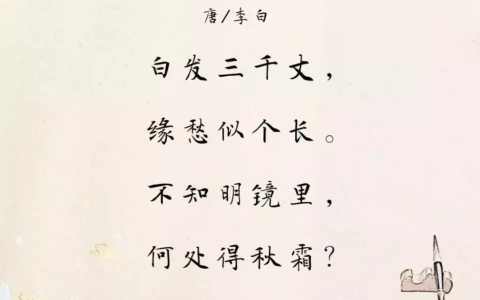 唐/李白
白发三千丈，
缘愁似个长。
不知明镜里，
何处得秋霜？